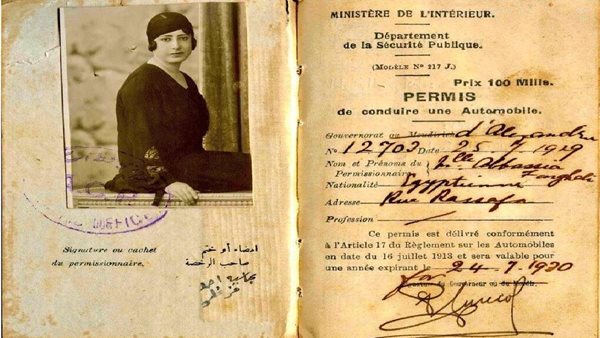 امضاء أو ختم
Signature ou cachet صاحب الرخصة
du permissionnaire. عباسية احمد
فرغلى
MINISTÈRE DE L'INTÉRIEUR.
Département
de la Sécurité Publique.
(MODÈLE No 217 J.)
Prix 100 Mills.
PERMIS
de conduire une Automobile.
Gouvernorat ou Moudirieh d'Alexandrie
No 12703 Date 25 / 7 1929
Nom et Prénoms du Mlle Abbassia
Permissionnaire Farghali
Nationalité Egyptienne
Adresse Rue Rassafa
Profession
Ce permis est délivré conformément
à l'Article 17 du Règlement sur les Automobiles
en date du 16 juillet 1913 et sera valable pour
une année expirant le 24 . 7 . 1930
for